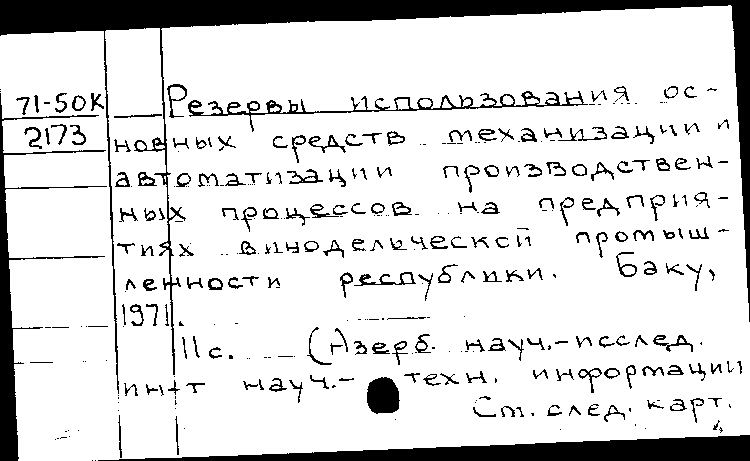 71-50К
2173
Резервы использования ос-
новных средств механизации и
автоматизации производствен-
ных процессов на предприя-
тиях винодельческой промыш-
ленности республики. Баку,
1971.
11с. (Азерб. науч.-исслед.
ин-т науч.-техн. информации
См. след. карт.